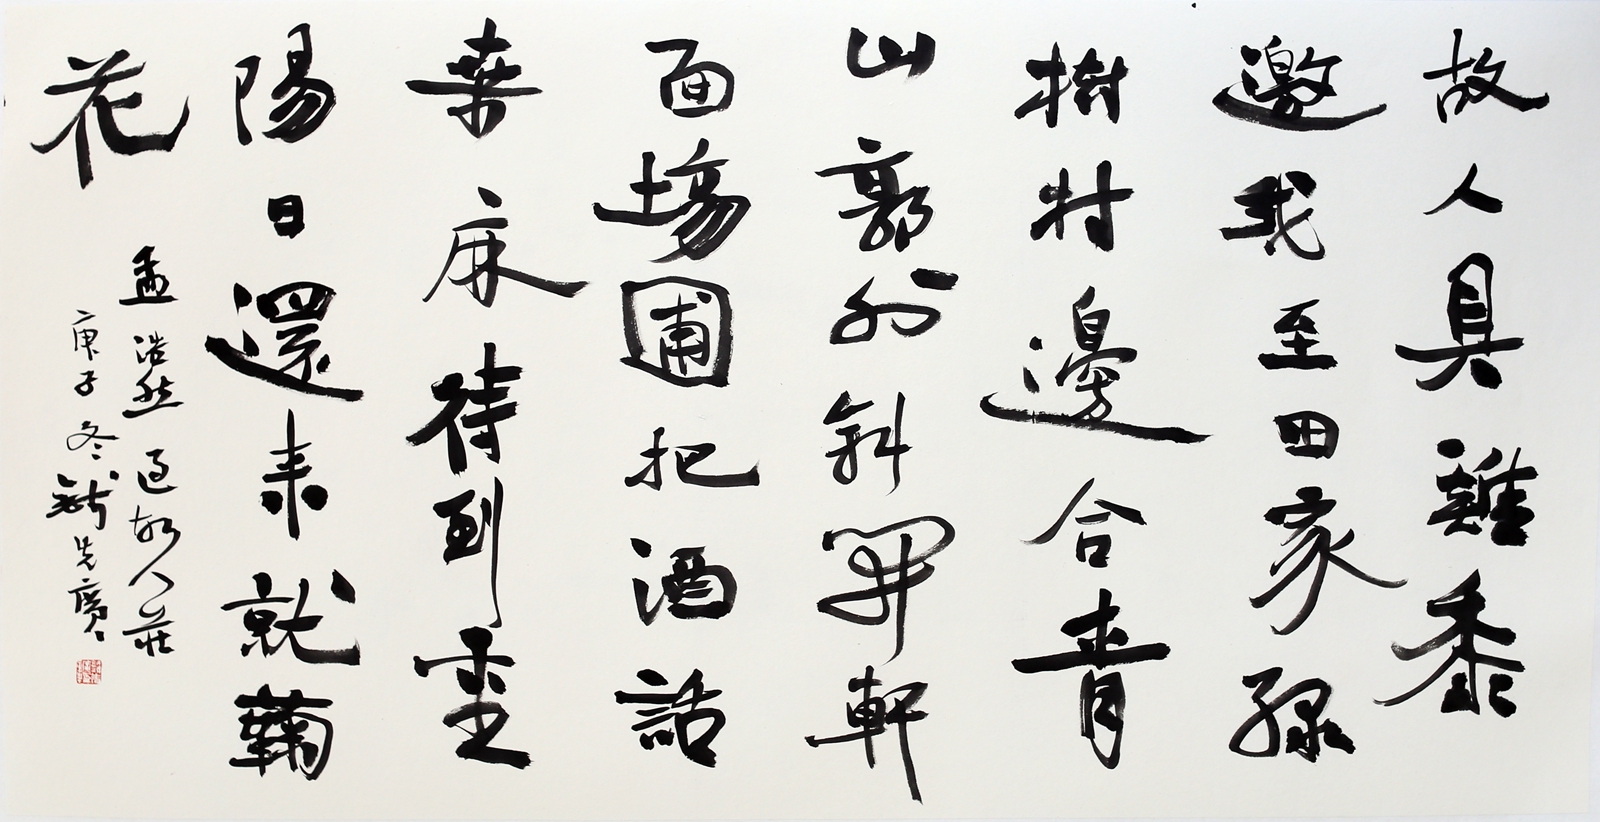 故人具雞黍
邀我至田家綠
樹村邊合青
山郭外斜開軒
面場圃把酒話
桑麻待到重
陽日還來就蘜
花
孟浩然過故人莊
庚子冬先廣